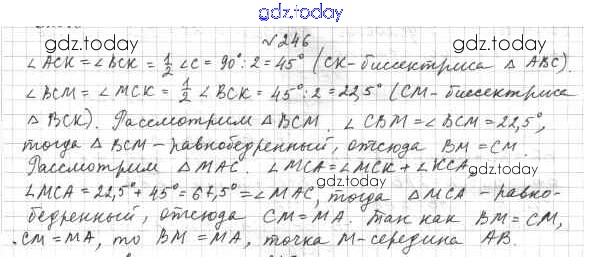 gdz.today
№246
gdz.today gdz.today
∠ACK=∠BCK=½∠C=90°:2=45° (CK-биссектриса △ABC).
∠BCM=∠MCK=½∠BCK=45°:2=22,5° (CM-биссектриса
△BCK). Рассмотрим △BCM. ∠CBM=∠BCM=22,5°,
gdz.today
тогда △BCM-равнобедренный, отсюда BM=CM.
Рассмотрим △MAC. ∠MCA=∠MCK+∠KCA,
gdz.today
∠MCA=22,5°+45°=67,5°=∠MAC, тогда △MCA-равно-
бедренный, отсюда CM=MA. Так как BM=CM,
CM=MA, то BM=MA, точка M-середина AB.
gdz.today